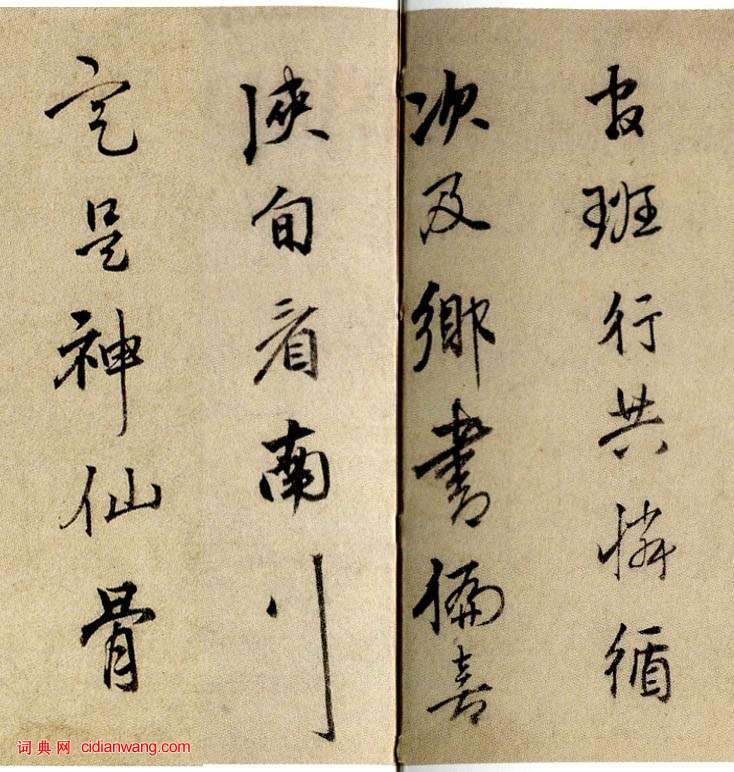 班行共憐循
次及鄉書偏喜
浹旬看南川
定是神仙骨
词典网 cidianwang.com